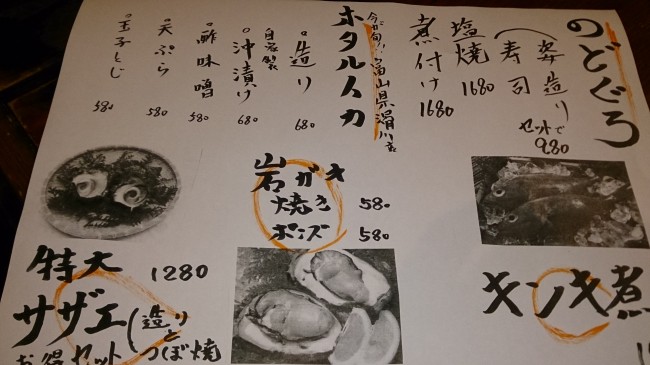 のどぐろ
姿造り
寿司
セットで
980
塩焼
1680
煮付け
1680
今が旬!!富山県滑川産
ホタルイカ
造り
680
自家製
沖漬け
680
酢味噌
580
天ぷら
580
玉子とじ
580
岩ガキ
焼き 580
ポンズ 580
特大 1280
サザエ(造りと
お得セット つぼ焼
キンキ煮